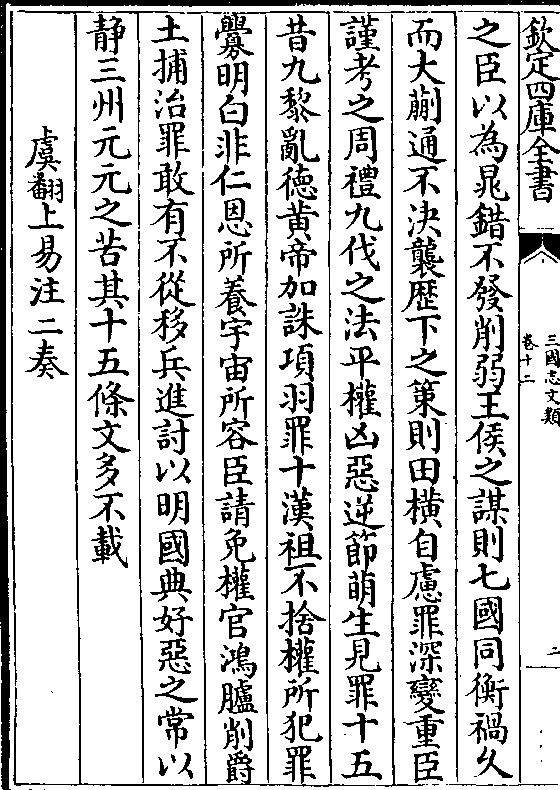 欽定四庫全書
三國志文類
卷十二
二
之臣以為鼂錯不發削弱王侯之謀則七國同衡禍久
而大蒯通不決襲歷下之策則田横自慮罪深變重臣
謹考之周禮九伐之法平權凶惡逆節萌生見罪十五
昔九黎亂德黄帝加誅項羽罪十漢祖不捨權所犯罪
釁明白非仁恩所養宇宙所容臣請免權官鴻臚削爵
土捕治罪敢有不從移兵進討以明國典好惡之常以
静三州元元之苦其十五條文多不載
虞翻上易注二奏